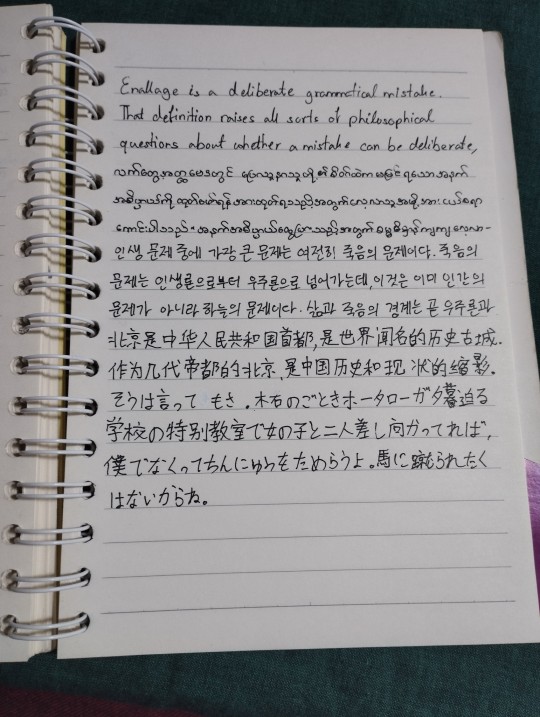 Enallage is a deliberate grammatical mistake.
That definition raises all sorts of philosophical
questions about whether a mistake can be deliberate,
လက်တွေ့အတ္ထဗေဒတွင် ပြောသူနာသူတို့၏ စိတ်ထဲက မမြင်ရသောအနက်
အဓိပ္ပာယ်ကို ထုတ်ဖော်ရန် အားထုတ်ရသည့်အတွက် လေ့လာသူအဖို့ အား
ကောင်းပါသည်။ အနက်အဓိပ္ပာယ်တွေ ပြားသည့်အတွက် ကျကျ လေ့လာ-
인생 문제 중에 가장 큰 문제는 여전히 죽음의 문제이다. 죽음의
문제는 인생론으로부터 우주론으로 넘어가는데, 이것은 이미 인간의
문제가 아니라 하늘의 문제이다. 삶과 죽음의 경계는 곧 우주론과
北京是中华人民共和国首都,是世界闻名的历史古城.
作为几代帝都的北京,是中国历史和现状的缩影.
そうは言って もさ。木石のごときホータローガ夕暮迫る
学校の特別教室で女の子と二人差し向かってれば,
僕でなくってちんにゅうをためらうよ。馬に蹴られたく
はないからね。